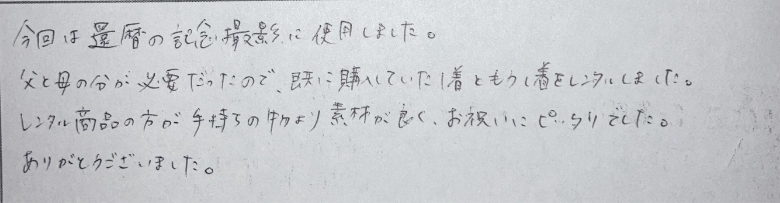 今回は還暦の記念撮影に使用しました。
父と母の分が必要だったので、既に購入していた1着ともう1着をレンタルしました。
レンタル商品の方が手持ちの物より素材が良く、お祝いにピッタリでした。
ありがとうございました。